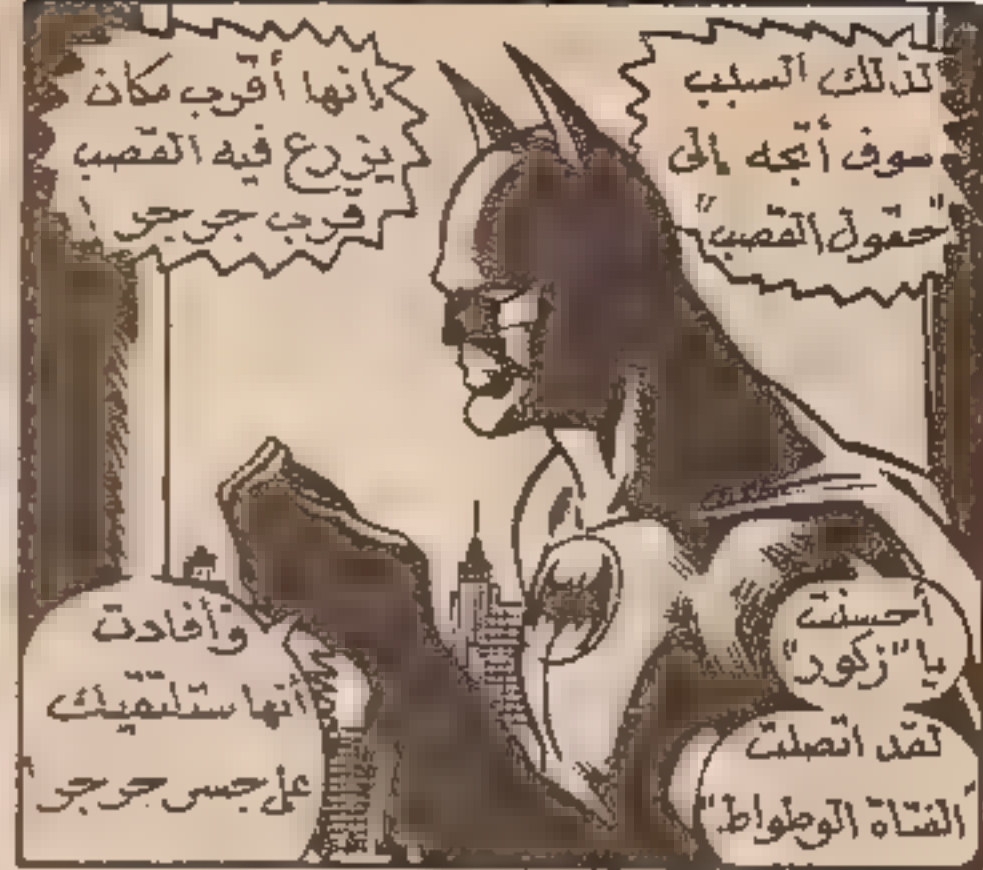 لذلك السبب
سوف أتجه إلى
"حقول القصب"
إنها أقرب مكان
يزرع فيه القصب
قرب جو جو
أحسنت
يا "زكور"
لقد اتصلت
"الفتاة الوطواط"
وأفادت
أنها ستلتقيك
على جسر جو جو